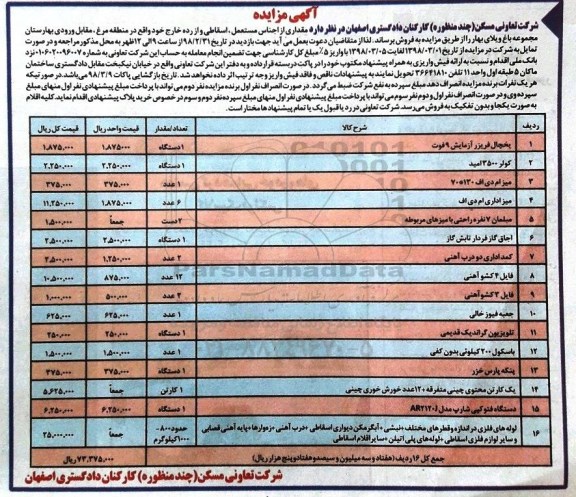 آگهی مزایده
شرکت تعاونی مسکن(چند منظوره) کارکنان دادگستری اصفهان در نظر دارد مقداری از اجناس مستعمل، اسقاطی و از رده خارج خود واقع در منطقه مرغ، مقابل ورودی بهارستان
مجموعه باغ ویلای بهار را از طریق مزایده به فروش برساند. لذا از متقاضیان دعوت بعمل می آید جهت بازدید در تاریخ ۹۸/۲/۳۱ از ساعت ۹ الی ۱۲ ظهر به محل مذکور مراجعه و در صورت
تمایل به شرکت در مزایده از تاریخ ۱۳۹۸/۰۳/۰۱ لغایت ۱۳۹۸/۰۳/۰۵ با واریز ۵٪ مبلغ کل کارشناسی جهت تضمین انجام معامله به حساب این شرکت تعاونی به شماره ۰۱۰۶۰۲۰۹۶۰۰۷-نزد
بانک ملی اقدام و نسبت به ارائه فیش واریزی به همراه پیشنهاد مکتوب خود را در پاکت دربسته قرار داده و به دفتر این شرکت تعاونی واقع در خیابان نیکبخت مقابل دادگستری ساختمان
ماکان ۵ طبقه اول واحد ۱۱ تلفن ۳۶۶۴۱۸۱۰ تحویل نمایند به پیشنهادات ناقص و فاقد فیش واریز وجه ترتیب اثر داده نخواهد شد. تاریخ بازگشایی پاکات ۹۸/۳/۹ می باشد. در صورتیکه
هر یک نفرات برنده مزایده انصراف دهد مبلغ سپرده به نفع شرکت ضبط می گردد. در صورت انصراف نفر اول برنده مزایده نفر دوم می تواند با پرداخت مبلغ پیشنهادی نفر اول منهای مبلغ
سپرده وی و در صورت انصراف نفر اول و دوم نفر سوم می تواند با پرداخت مبلغ پیشنهادی نفر اول منهای مبلغ سپرده نفر دوم و سوم در خصوص خرید پلاک پیشنهادی اقدام نماید. کلیه اقلام
به صورت یکجا و بدون تفکیک به فروش می رسد. شرکت تعاونی در رد یا قبول یک یا تمام پیشنهادها مختار است.
ردیف شرح کالا تعداد/مقدار قیمت واحد ریال قیمت کل ریال
۱ یخچال فریزر آزمایش ۹ فوت ۱ دستگاه ۱,۸۷۵,۰۰۰ ۱,۸۷۵,۰۰۰
۲ کولر ۳۵۰۰ امید ۱ دستگاه ۲,۲۵۰,۰۰۰ ۲,۲۵۰,۰۰۰
۳ میز ام دی اف ۱۳۰*۷۰ ۱ عدد ۳۷۵,۰۰۰ ۳۷۵,۰۰۰
۴ میز اداری ام دی اف ۶ عدد ۱,۸۷۵,۰۰۰ ۱۱,۲۵۰,۰۰۰
۵ مبلمان ۷ نفره راحتی با میزهای مربوطه ۲ دست جمعاً ۱,۵۰۰,۰۰۰
۶ اجاق گاز فردار تابش گاز ۱ دستگاه ۲,۵۰۰,۰۰۰ ۲,۵۰۰,۰۰۰
۷ کمد اداری دو درب آهنی ۲ عدد ۱,۲۵۰,۰۰۰ ۲,۵۰۰,۰۰۰
۸ فایل ۴ کشو آهنی ۱۲ عدد ۸۷۵,۰۰۰ ۱۰,۵۰۰,۰۰۰
۹ فایل ۳ کشو آهنی ۲ عدد ۵۰۰,۰۰۰ ۱,۰۰۰,۰۰۰
۱۰ جعبه فیوز خالی ۱ عدد ۶۲۵,۰۰۰ ۶۲۵,۰۰۰
۱۱ تلویزیون گراندیک قدیمی ۱ دستگاه ۲۵۰,۰۰۰ ۲۵۰,۰۰۰
۱۲ باسکول ۲۰۰ کیلوئی بدون کفی ۱ عدد ۱,۵۰۰,۰۰۰ ۱,۵۰۰,۰۰۰
۱۳ پنکه پارس خزر ۱ دستگاه ۳۷۵,۰۰۰ ۳۷۵,۰۰۰
۱۴ یک کارتن محتوی چینی متفرقه ۱۲۰ عدد خورش خوری چینی ۱ کارتن جمعاً ۵,۶۲۵,۰۰۰
۱۵ دستگاه فتوکپی شارپ مدل (AR۲۱۲۰ ۱ دستگاه ۶,۲۵۰,۰۰۰ ۶,۲۵۰,۰۰۰
۱۶ لوله های فلزی در اندازه و قطر های مختلف +نبشی + آبگرمکن دیواری اسقاطی + درب آهنی + زموارها + پایه آهنی فضایی حدود ۸۰۰- جمعاً ۲۵,۰۰۰,۰۰۰
و سایر لوازم فلزی اسقاطی + لوله های پلی اتیلن + سایر اقلام اسقاطی ۱۰۰۰ کیلوگرم
جمع کل ۱۶ ردیف (هفتاد و سه میلیون و سیصد و هفتاد و پنج هزار ریال) ۷۳,۳۷۵,۰۰۰ ریال
شرکت تعاونی مسکن(چند منظوره) کارکنان دادگستری اصفهان
ParsNamadData